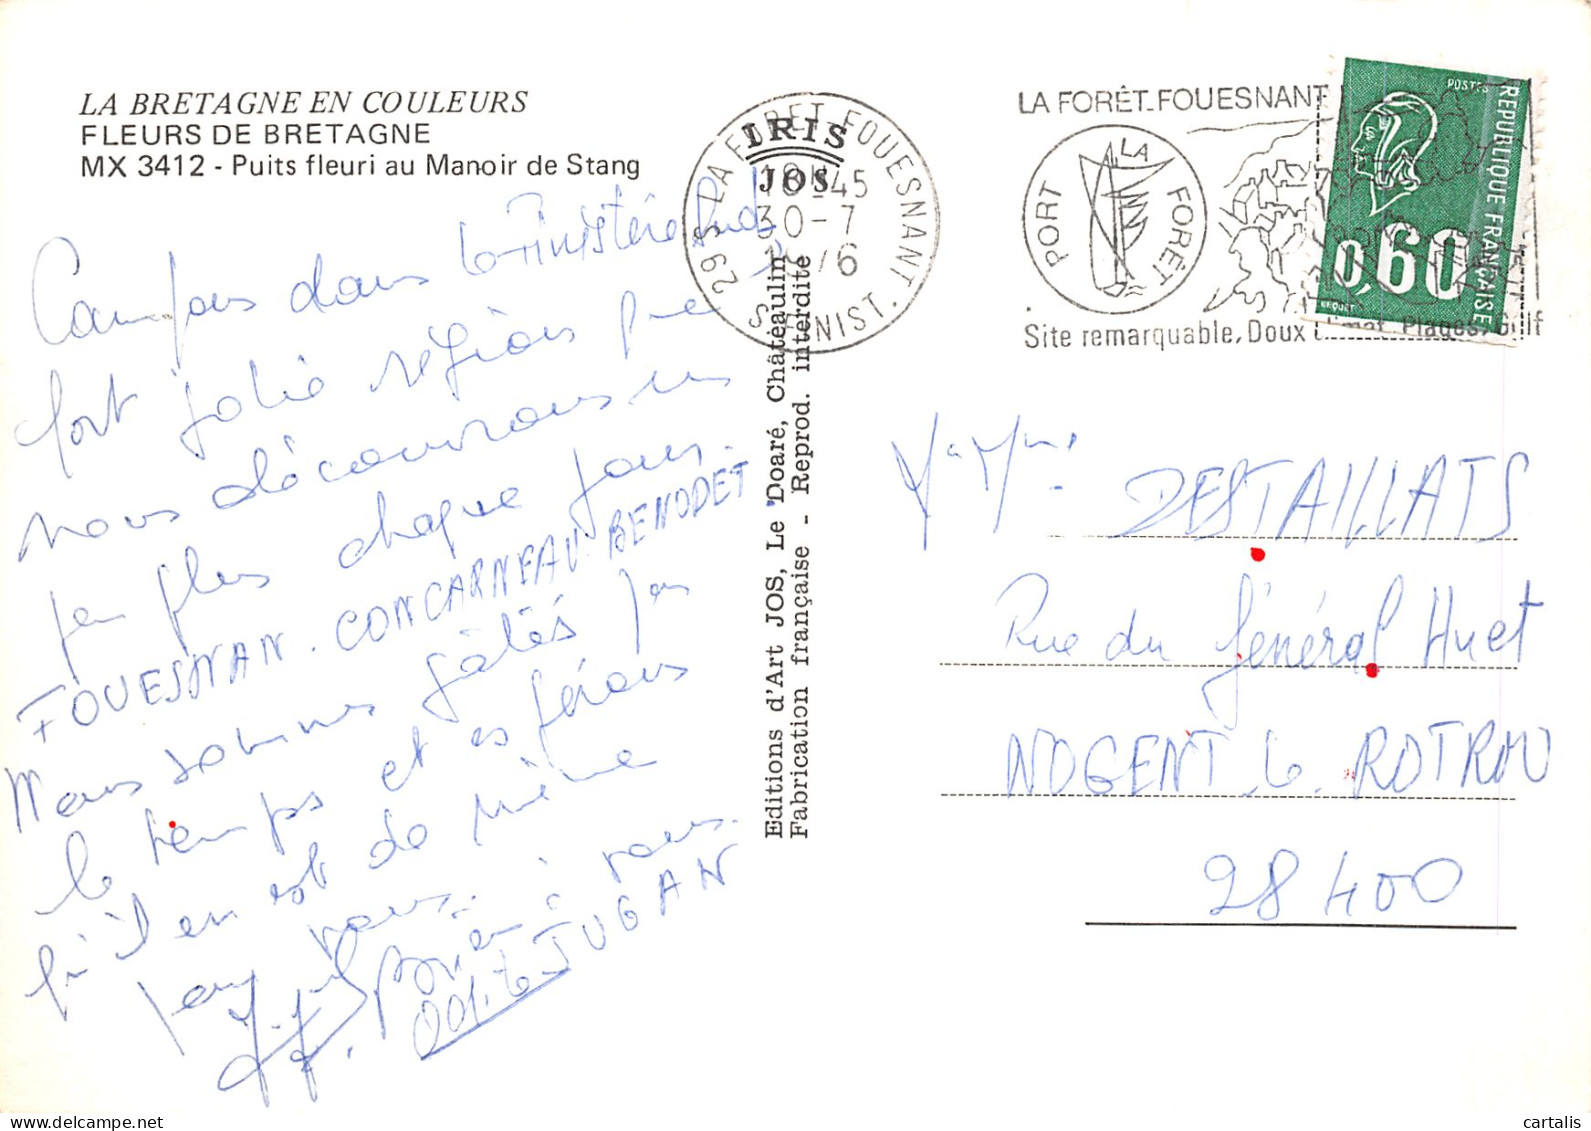 LA BRETAGNE EN COULEURS
FLEURS DE BRETAGNE
MX 3412 - Puits fleuri au Manoir de Stang
dans le Finistère Sud
fort jolie région que
nous découvrons un
peu plus chaque jour.
FOUESNAN. CONCARNEAU. BENODET
Nous sommes gâtés par
le temps et espérons
qu'il en est de même
pour vous.
à vous.
JUGAN
IRIS
JOS
Editions d'Art JOS, Le Doaré, Châteaulin
Fabrication française - Reprod. interdite
29 S LA FORET FOUESNANT
18H45
30-7
S FINIST.
LA FORÊT-FOUESNANT
PORT LA FORÊT
Site remarquable, Doux climat, Plages, Golf
POSTES
REPUBLIQUE FRANÇAISE
0,60
BEQUET
DESTAILLATS
Rue du général Huet
NOGENT le ROTROU
28400
cartalis